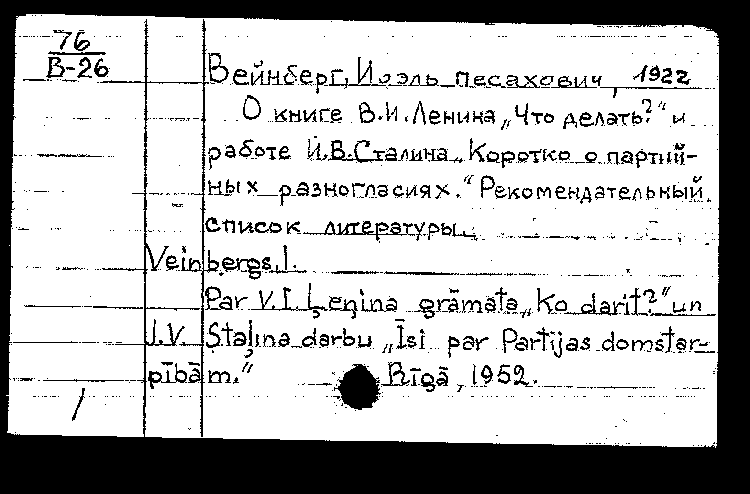 76
В-26
Вейнберг, Иоэль Песахович, 1922
О книге В.И.Ленина „Что делать?“ и
работе И.В.Сталина „Коротко о партий-
ных разногласиях.“ Рекомендательный
список литературы.
Veinbergs, I.
Par V.I. Ļeņina grāmata „Ko darīt?“ un
J.V. Staļina darbu „Īsi par Partijas domstar-
pībām.“ Rīgā, 1952.
/